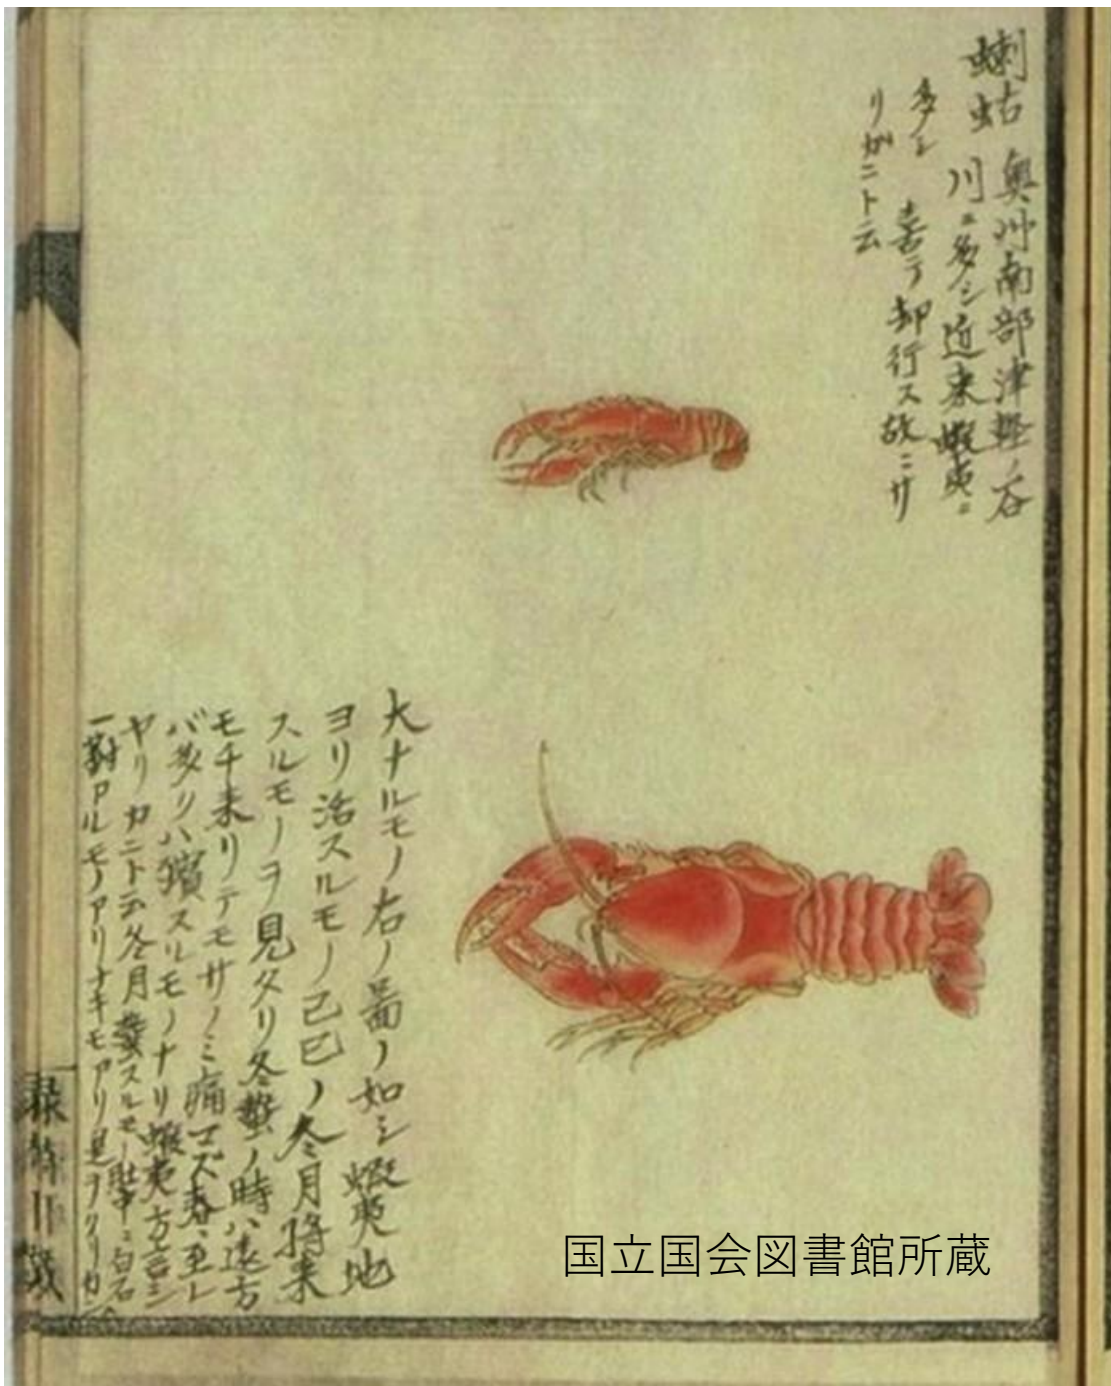 蝲蛄 奥州南部津軽ノ谷
川ニ多シ近来蝦夷ニ
多シ 喜テ却行ス故ニサ
リガニト云
大ナルモノ右ノ啚ノ如シ蝦夷地
ヨリ活スルモノ己巳ノ冬月将来
スルモノヲ見タリ冬蟄ノ時ハ遠方
モチ来リテモサノミ痛マズ春ニ至レ
バ多リハ斃スルモノナリ蝦夷方言シ
ヤリカニト云冬月蟄スルモノ腦中ニ白石
一對アルモノアリナキモアリ是ヲクリカン
国立国会図書館所蔵